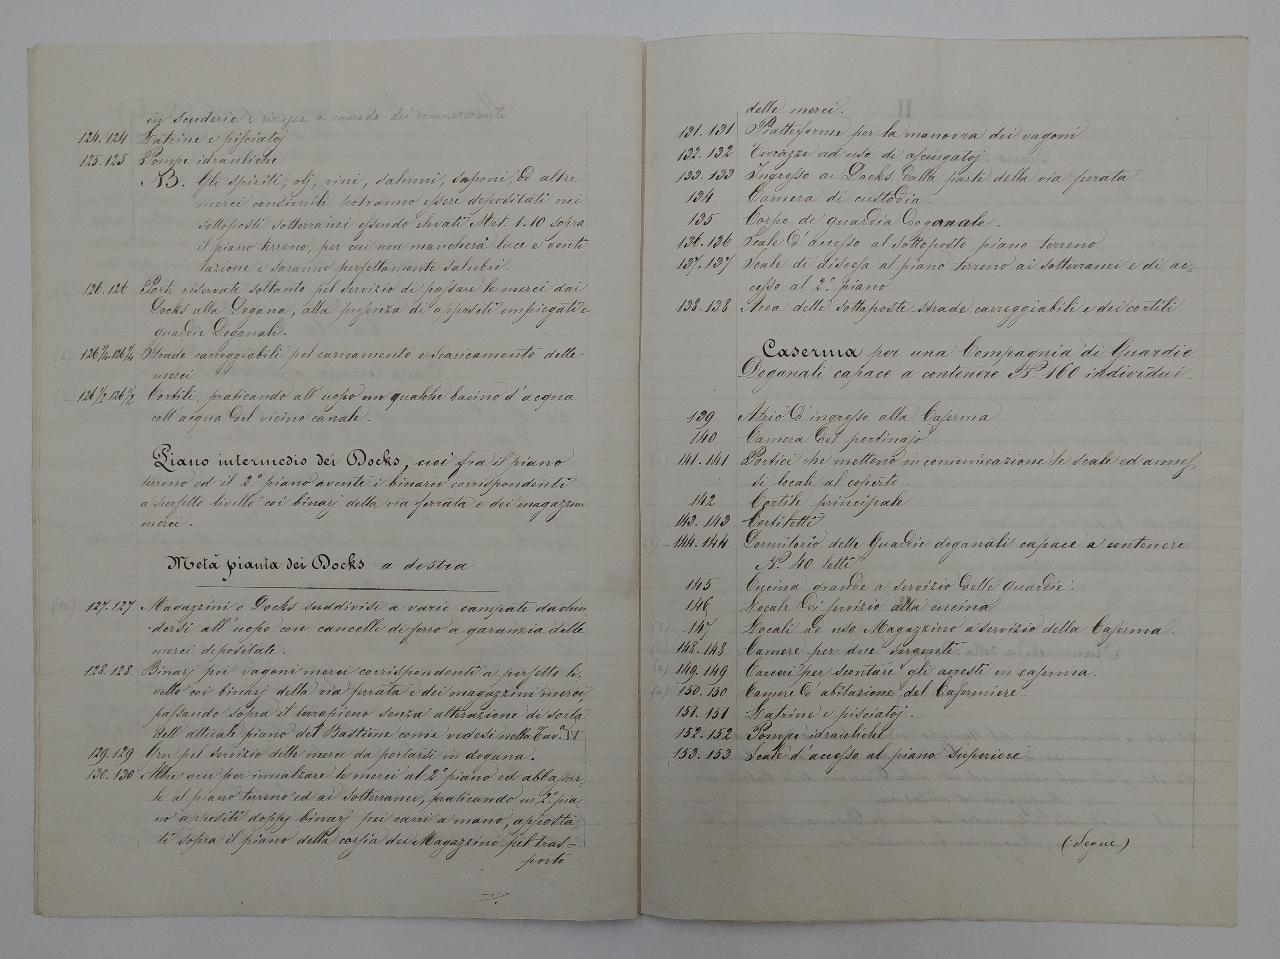 in scuderie e rimesse a comodo dei commercianti
124.124 Latrine e pisciatoj
125.125 Pompe idrauliche
NB. Gli spiriti, olj, vini, salumi, saponi, ed altre
merci consimili potranno essere depositati nei
sottoposti sotterranei essendo elevati Met. 1.10 sopra
il piano terreno, per cui non mancherà luce e venti
lazione e saranno perfettamente salubri.
126.126 Porte riservate soltanto pel servizio di passare le merci dai
Docks alla Dogana, alla presenza di appositi impiegati e
guardie Doganali.
126 1/4.126 1/4 Strade carreggiabili pel caricamento e scaricamento delle
merci
126 1/2.126 1/2 Cortili, praticando all'uopo un qualche bacino d'acqua
coll'acqua del vicino canale.
Piano intermedio dei Docks, cioè fra il piano
terreno ed il 2° piano avente i binarii corrispondenti
a perfetto livello coi binarj della via ferrata e dei magazzini
merci.
Metà pianta dei Docks a destra
127.127 Magazzini o Docks suddivisi a varie campate da chiu-
dersi all'uopo con cancelli di ferro a garanzia delle
merci depositate.
128.128. Binarj pei vagoni merci corrispondenti a perfetto li-
vello coi binarj della via ferrata e dei magazzini merci,
passando sopra il terrapieno senza alterazione di sorta
dell'attuale piano del Bastione come vedesi nella Tav.ª VI
129.129 Gru pel servizio delle merci da portarsi in dogana.
130.130 Altre gru per innalzare le merci al 2° piano ed abbassar-
le al piano terreno ed ai sotterranei, praticando in 2° pia-
no appositi doppj binarj pei carri a mano, apposta-
ti sopra il piano della corsia dei Magazzini pel tras-
porto
delle merci.
131.131 Piatteforme per la manovra dei vagoni
132.132 Terrazze ad uso di asciugatoj
133.133 Ingresso ai Docks dalla parte della via ferrata
134 Camera di custodia.
135 Corpo di guardia Doganale.
136.136 Scale d'accesso al sottoposto piano terreno
137.137 Scale di discesa al piano terreno ai sotterranei e di ac-
cesso al 2° piano
138.138 Area delle sottoposte strade carreggiabili e dei cortili
Caserma per una Compagnia di Guardie
Doganali capace a contenere N.° 160 individui.
139 Atrio d'ingresso alla Caserma
140 Camera del portinajo
141.141 Portici che mettono in comunicazione le scale ed annes-
si locali al coperto.
142 Cortile principale
143.143 Cortiletti
144.144 Dormitorio delle Guardie doganali capace a contenere
N.° 40 letti
145 Cucina grande a servizio delle guardie.
146 Locale di servizio alla cucina
147 Locali ad uso Magazzino a servizio della Caserma.
148.148 Camere per due sergenti
149.149 Carceri per scontare gli arresti in caserma.
150.150 Camere d'abitazione del Casermiere
151.151 Latrine e pisciatoj.
152.152 Pompe idrauliche
153.153 Scale d'accesso al piano superiore
(Segue)